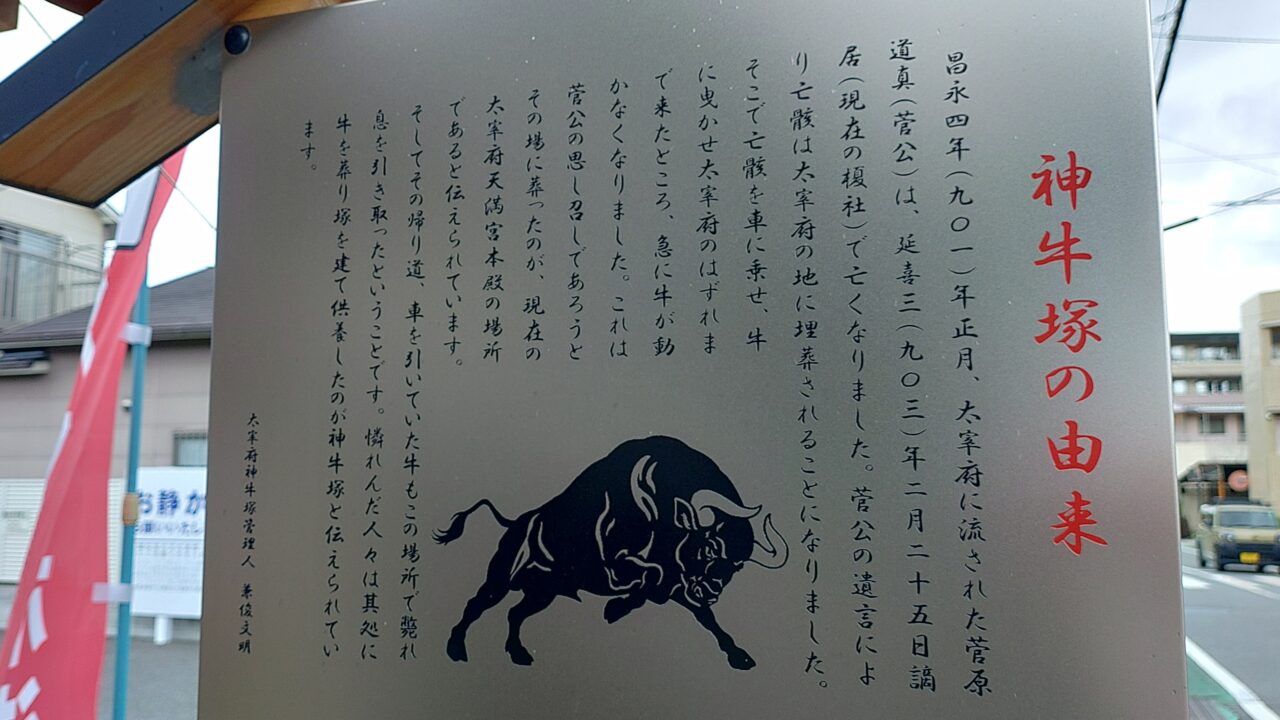 神牛塚の由来
昌永四年（九〇一）年正月、太宰府に流された菅原
道真（菅公）は、延喜三（九〇三）年二月二十五日謫
居（現在の榎社）で亡くなりました。菅公の遺言によ
り亡骸は太宰府の地に埋葬されることになりました。
そこで亡骸を車に乗せ、牛
に曳かせ太宰府のはずれま
で来たところ、急に牛が動
かなくなりました。これは
菅公の思し召しであろうと
その場に葬ったのが、現在の
太宰府天満宮本殿の場所
であると伝えられています。
そしてその帰り道、車を引いていた牛もこの場所で斃れ
息を引き取ったということです。憐れんだ人々は其処に
牛を葬り塚を建て供養したのが神牛塚と伝えられてい
ます。
太宰府神牛塚管理人 兼俊文明
お静か